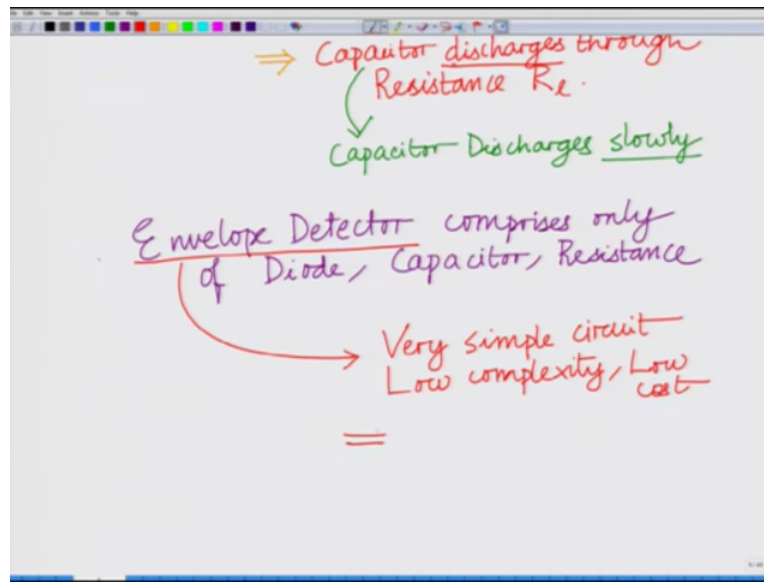 ⇒ Capacitor discharges through
Resistance Rl.
Capacitor Discharges slowly
Envelope Detector comprises only
of Diode, Capacitor, Resistance
Very simple circuit
Low complexity, Low
cost